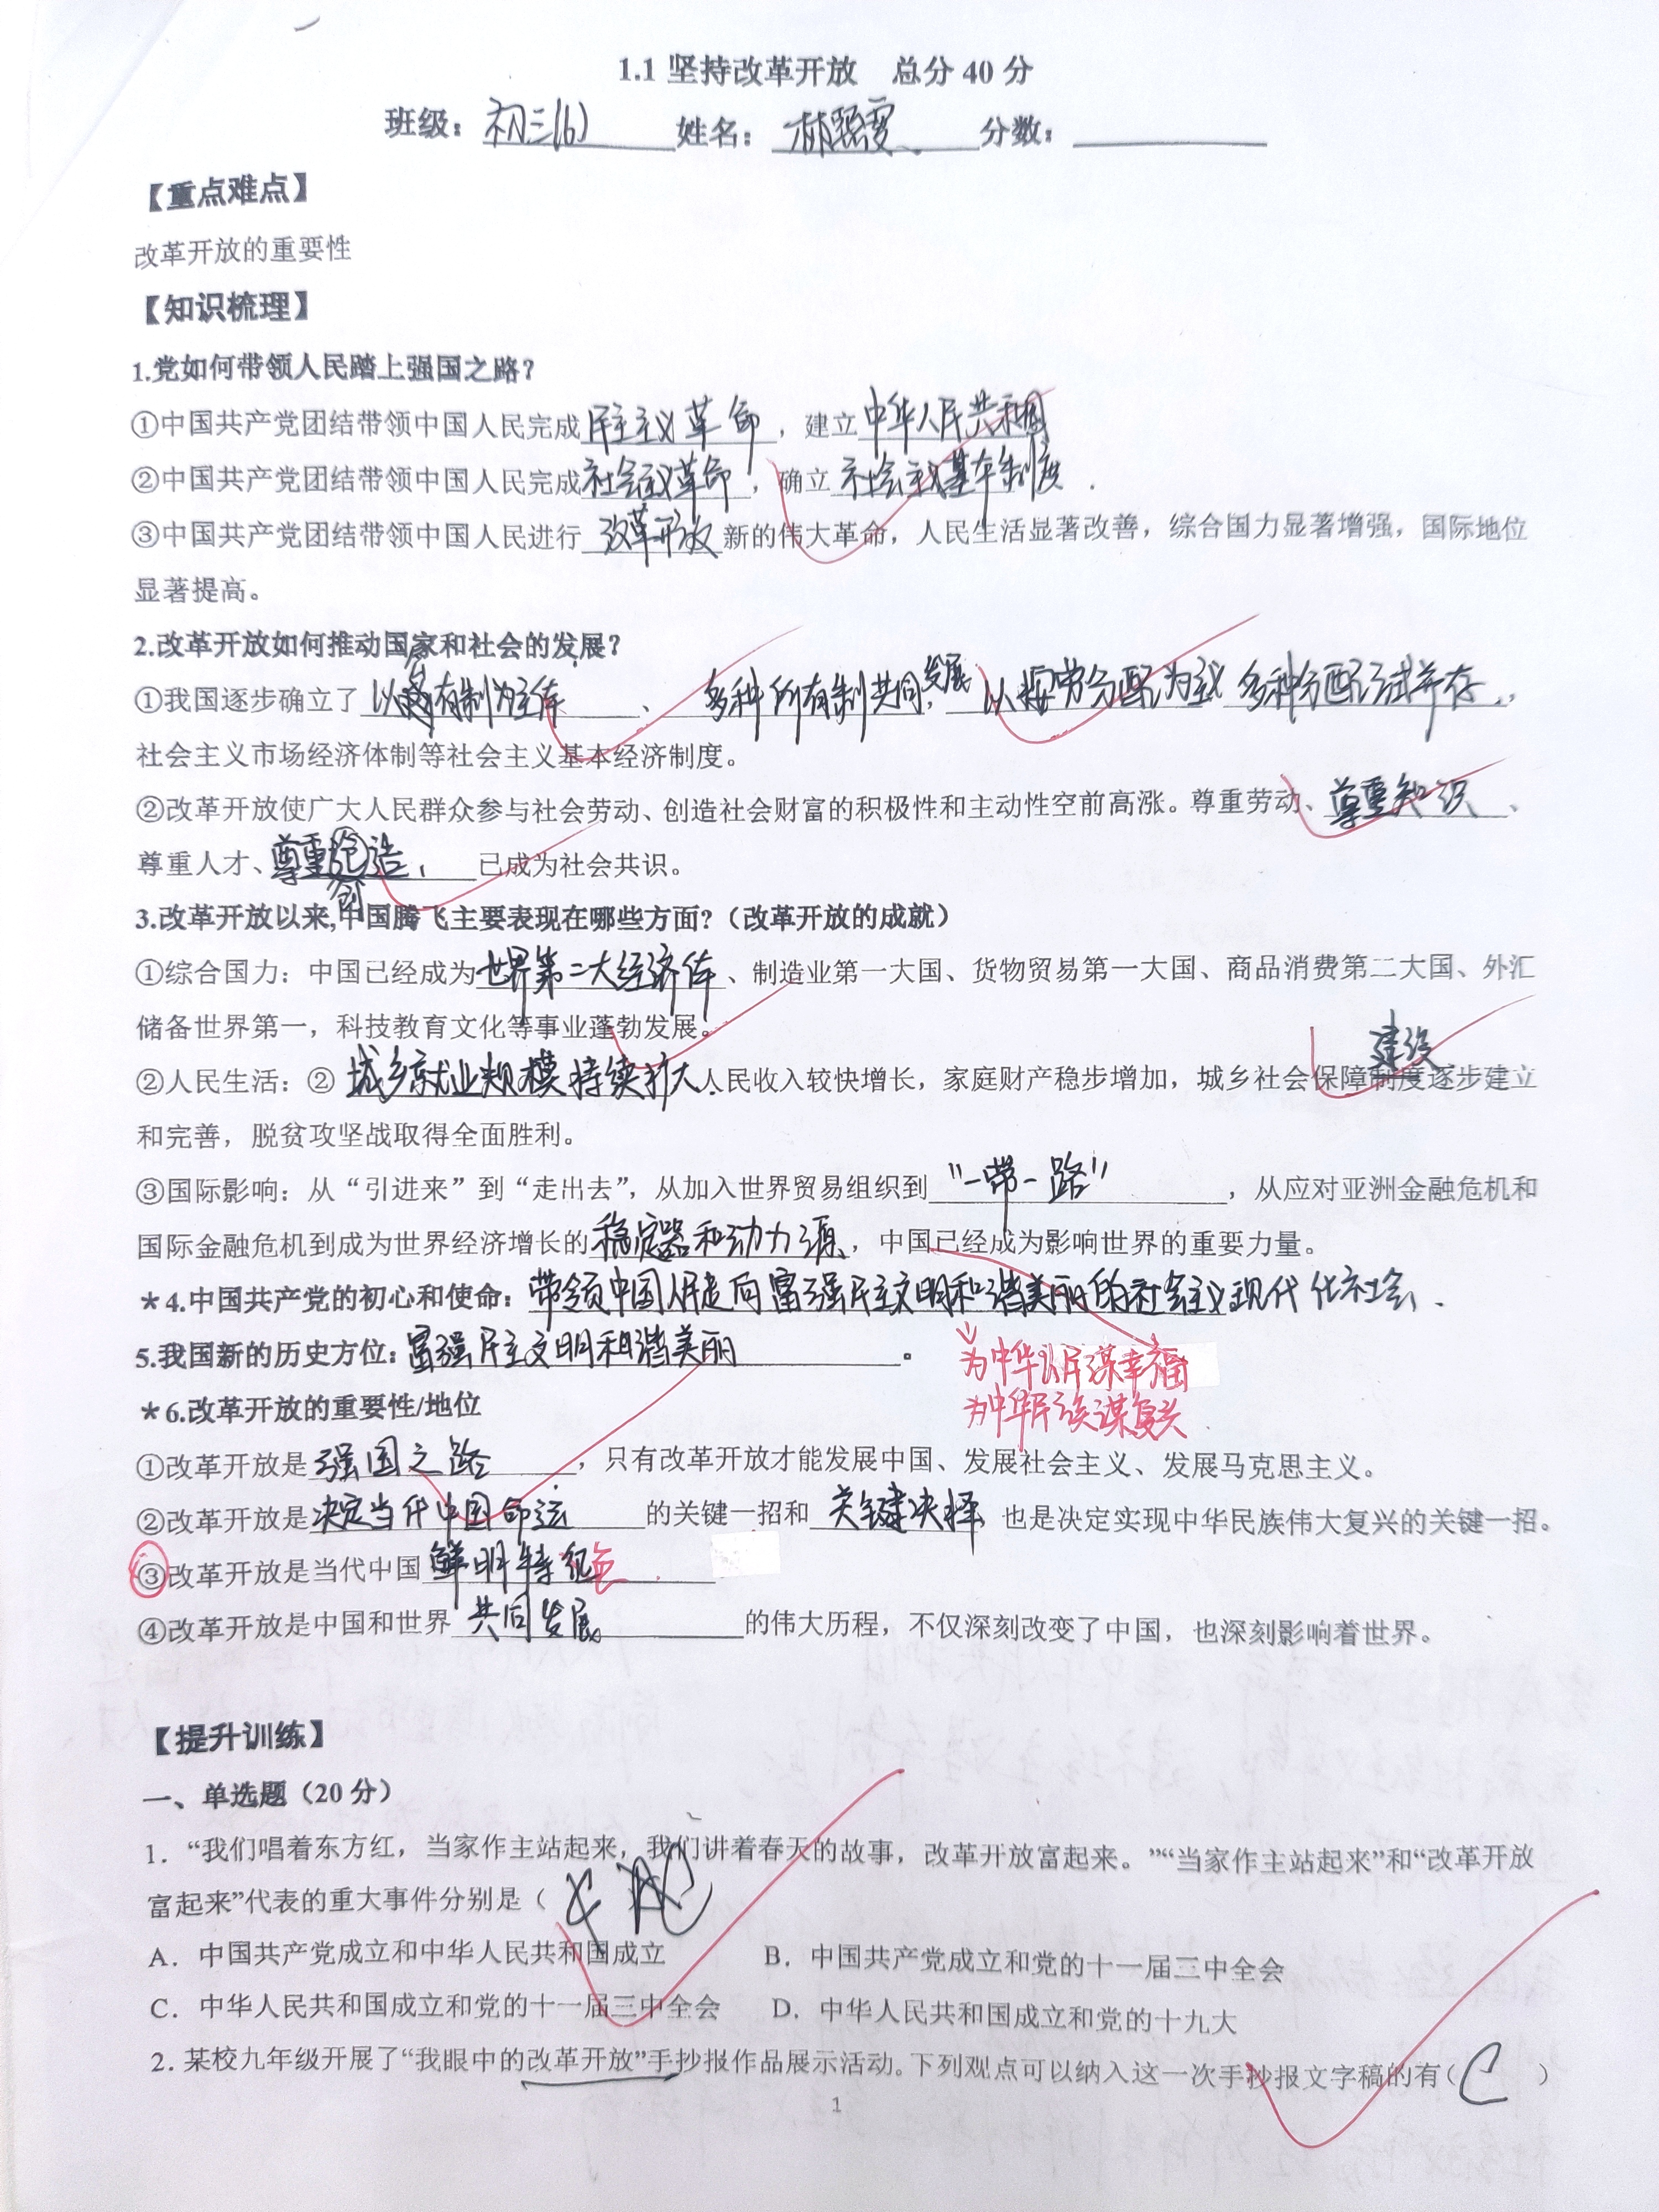 1.1 坚持改革开放 总分 40 分
班级：初三(6) 姓名： 分数：
【重点难点】
改革开放的重要性
【知识梳理】
1.党如何带领人民踏上强国之路？
①中国共产党团结带领中国人民完成民主主义革命，建立中华人民共和国
②中国共产党团结带领中国人民完成社会主义革命，确立社会主义基本制度．
③中国共产党团结带领中国人民进行改革开放新的伟大革命，人民生活显著改善，综合国力显著增强，国际地位
显著提高。
2.改革开放如何推动国家和社会的发展？
①我国逐步确立了以公有制为主体、多种所有制共同发展，以按劳分配为主 多种分配方式并存，
社会主义市场经济体制等社会主义基本经济制度。
②改革开放使广大人民群众参与社会劳动、创造社会财富的积极性和主动性空前高涨。尊重劳动、尊重知识、
尊重人才、尊重创造，已成为社会共识。
3.改革开放以来,中国腾飞主要表现在哪些方面?（改革开放的成就）
①综合国力：中国已经成为世界第二大经济体、制造业第一大国、货物贸易第一大国、商品消费第二大国、外汇
储备世界第一，科技教育文化等事业蓬勃发展。
建设
②人民生活：②城乡就业规模持续扩大．人民收入较快增长，家庭财产稳步增加，城乡社会保障制度逐步建立
和完善，脱贫攻坚战取得全面胜利。
③国际影响：从“引进来”到“走出去”，从加入世界贸易组织到“一带一路”，从应对亚洲金融危机和
国际金融危机到成为世界经济增长的稳定器和动力源，中国已经成为影响世界的重要力量。
★4.中国共产党的初心和使命：带领中国人民走向富强民主文明和谐美丽的社会主义现代化社会．
5.我国新的历史方位：富强民主文明和谐美丽。
为中华人民谋幸福
为中华民族谋复兴
★6.改革开放的重要性/地位
①改革开放是强国之路，只有改革开放才能发展中国、发展社会主义、发展马克思主义。
②改革开放是决定当代中国命运的关键一招和关键决择，也是决定实现中华民族伟大复兴的关键一招。
③改革开放是当代中国鲜明特色．
④改革开放是中国和世界共同发展的伟大历程，不仅深刻改变了中国，也深刻影响着世界。
【提升训练】
一、单选题（20 分）
1．“我们唱着东方红，当家作主站起来，我们讲着春天的故事，改革开放富起来。”“当家作主站起来”和“改革开放
富起来”代表的重大事件分别是（
A．中国共产党成立和中华人民共和国成立 B．中国共产党成立和党的十一届三中全会
C．中华人民共和国成立和党的十一届三中全会 D．中华人民共和国成立和党的十九大
2．某校九年级开展了“我眼中的改革开放”手抄报作品展示活动。下列观点可以纳入这一次手抄报文字稿的有（C）
1